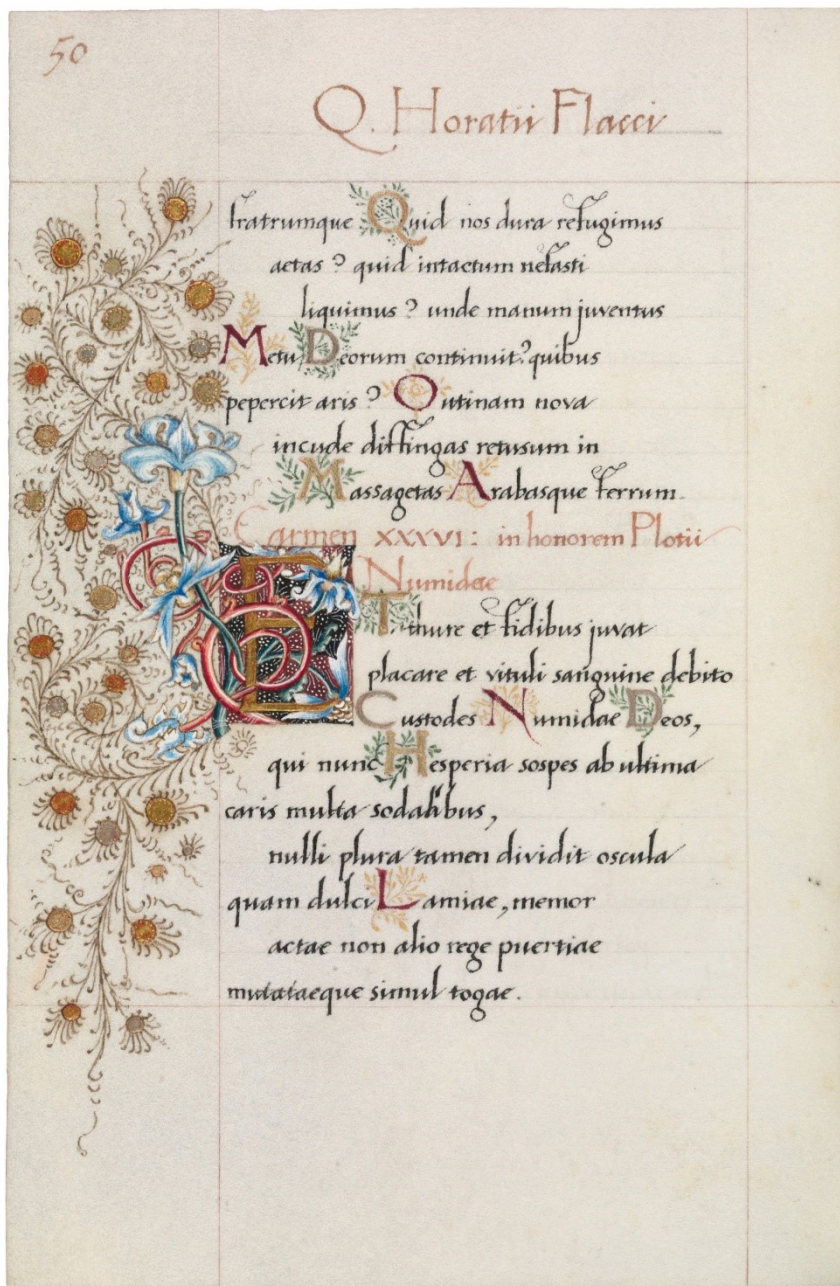 50
Q. Horatii Flacci
fratrumque Quid nos dura refugimus
aetas? quid intactum nefasti
liquimus? unde manum juventus
Metu Deorum continuit? quibus
pepercit aris? O utinam nova
incude diffingas retusum in
Massagetas Arabasque ferrum.
Carmen XXXVI: in honorem Plotii
Numidae
ET thure et fidibus juvat
placare et vituli sanguine debito
Custodes Numidae Deos,
qui nunc Hesperia sospes ab ultima
caris multa sodalibus,
nulli plura tamen dividit oscula
quam dulci Lamiae, memor
actae non alio rege puertiae
mutataeque simul togae.